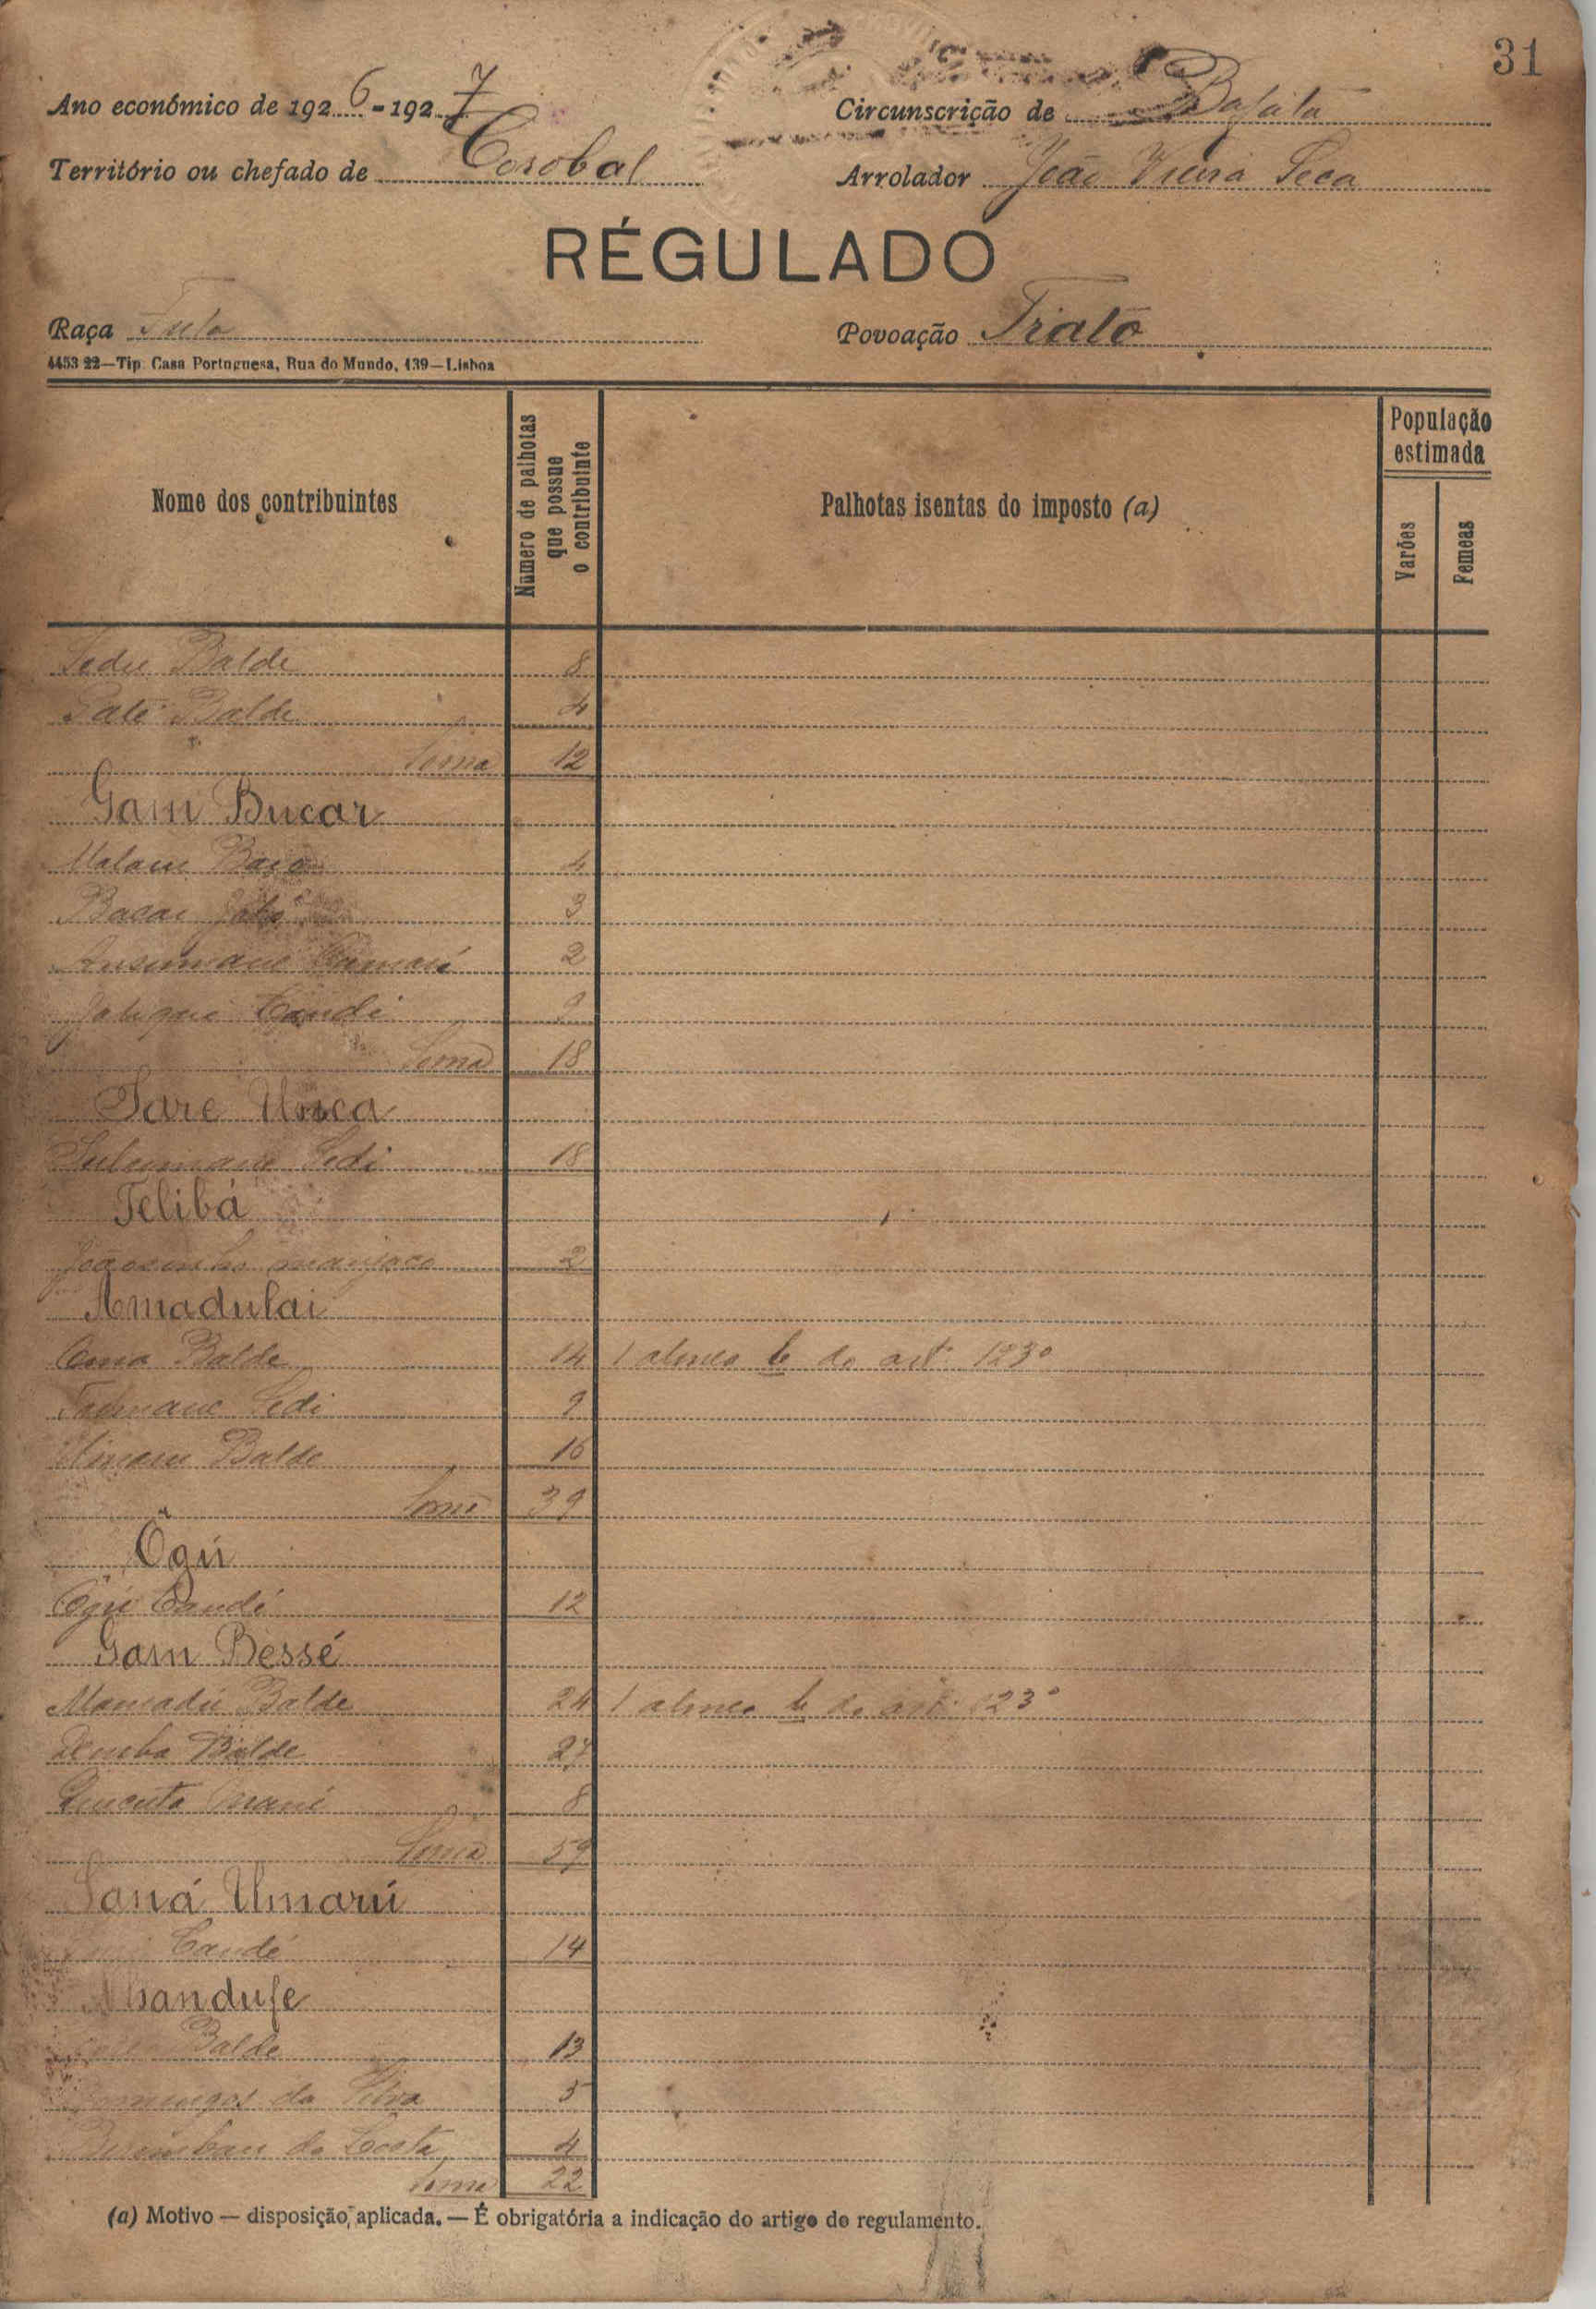 31
Ano económico de 1926-1927
Circunscrição de Bafatá
Território ou chefado de Corobal
Arrolador João Vieira Seca
RÉGULADO
Raça Fula
Povoação Triato
4453 22—Tip. Casa Portuguesa, Rua do Mundo, 139—Lisboa
Nome dos contribuintes
Número de palhotas que possue o contribuinte
Palhotas isentas do imposto (a)
População estimada
Varões
Femeas
Balde 8
Balde 4
Soma 12
Gam Bucar
4
Bacar 3
2
Candi 9
Soma 18
Sare
18
Telibá
manjaco 2
Amadulai
Balde 14 1 alinea b do art. 123º
9
Balde 16
Soma 39
Ogú
Ogú Candé 12
Gam Bessé
Mamadú Balde 24 1 alinea b do art. 123º
Demba Balde 27
Mané 8
Soma 59
Saná Umarú
Candé 14
Balde 13
Domingos da Silva 5
da Costa 4
Soma 22
(a) Motivo — disposição aplicada. — É obrigatória a indicação do artigo do regulamento.